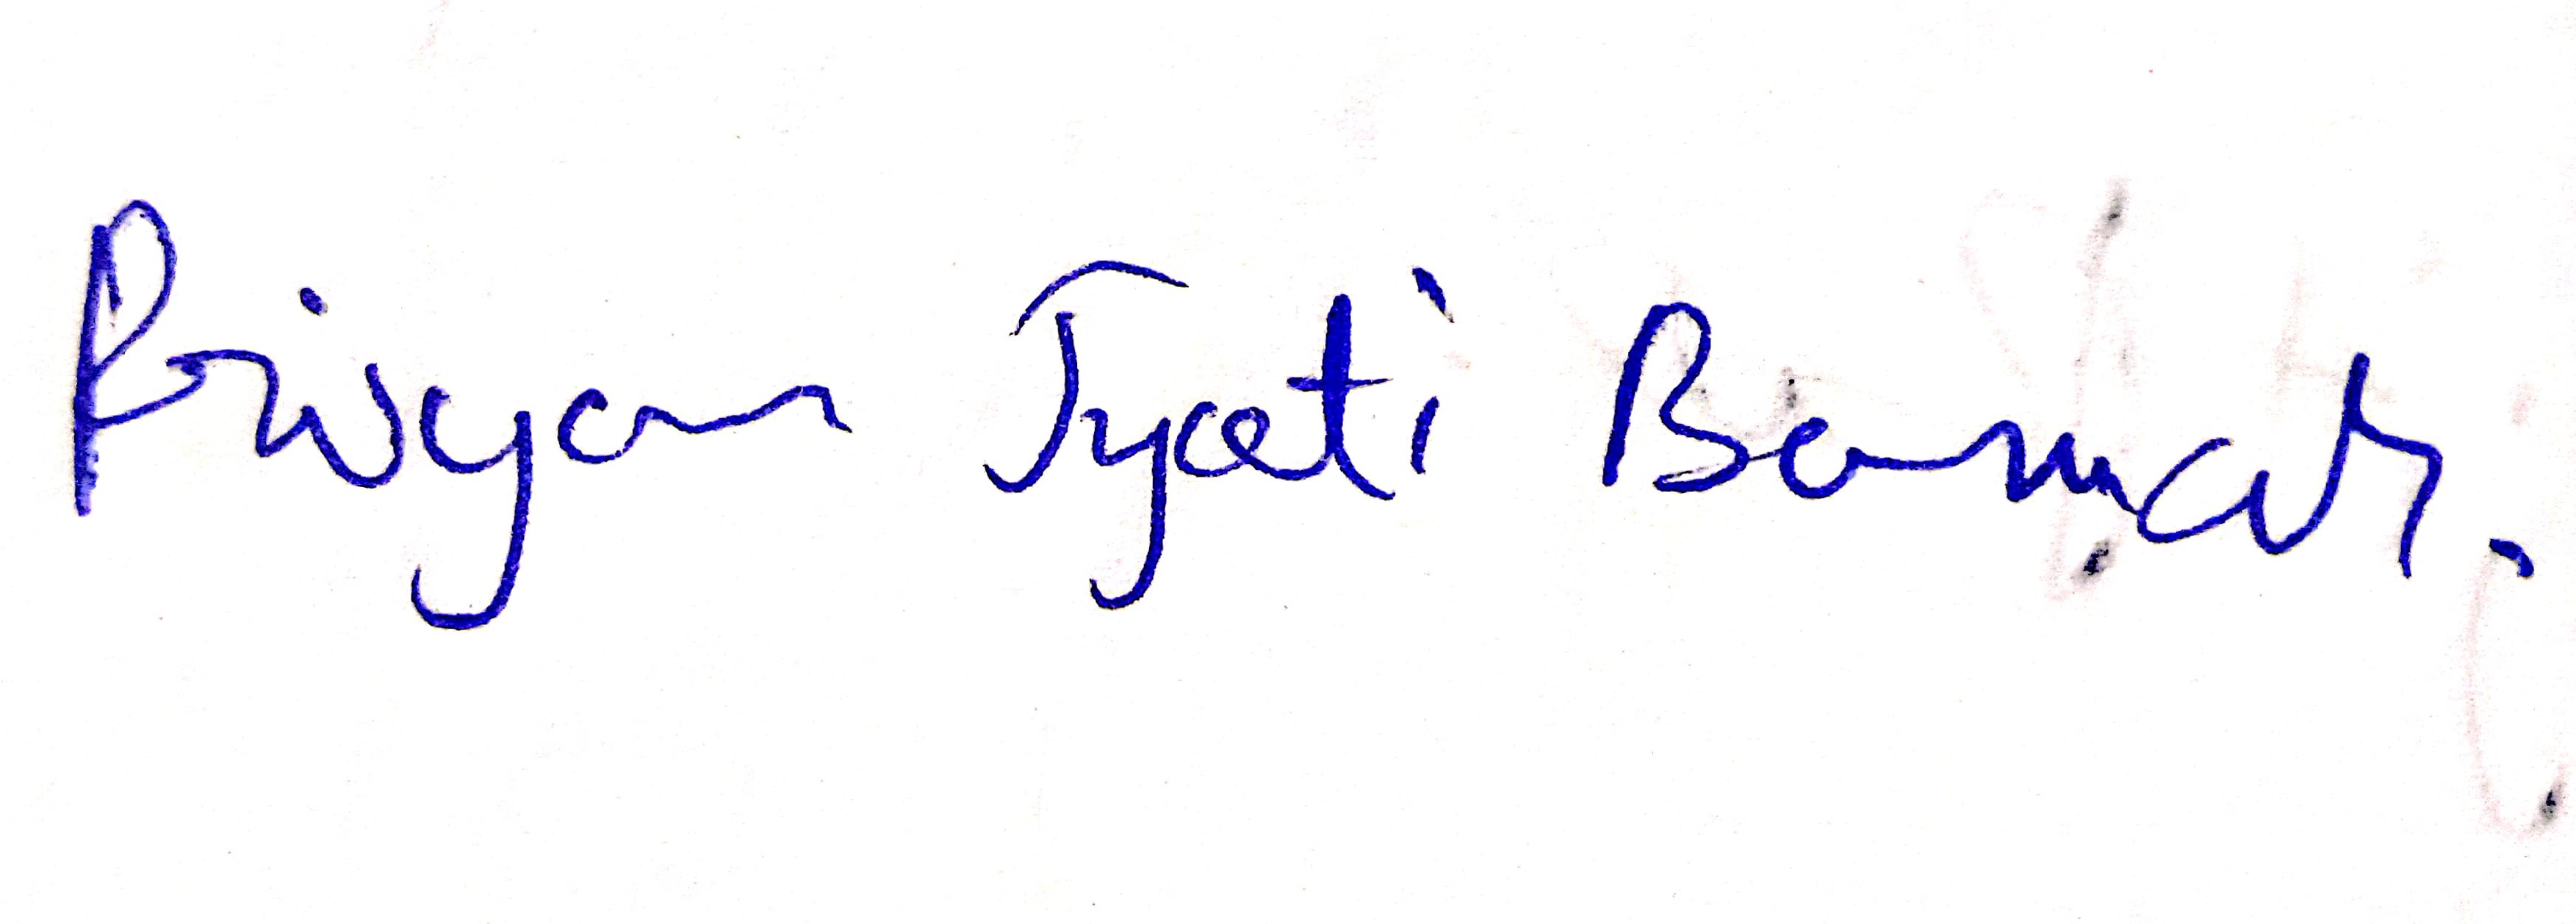 Priyan Jyoti Barman.